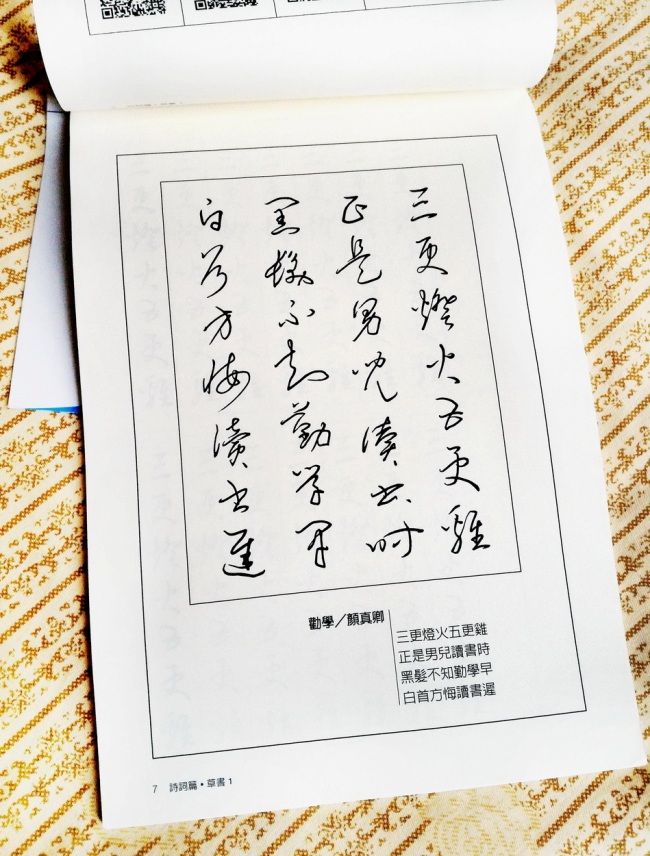 三更燈火五更雞
正是男兒讀書時
黑髮不知勤學早
白首方悔讀書遲
勸學／顏真卿
三更燈火五更雞
正是男兒讀書時
黑髮不知勤學早
白首方悔讀書遲
7 詩詞篇・草書 1